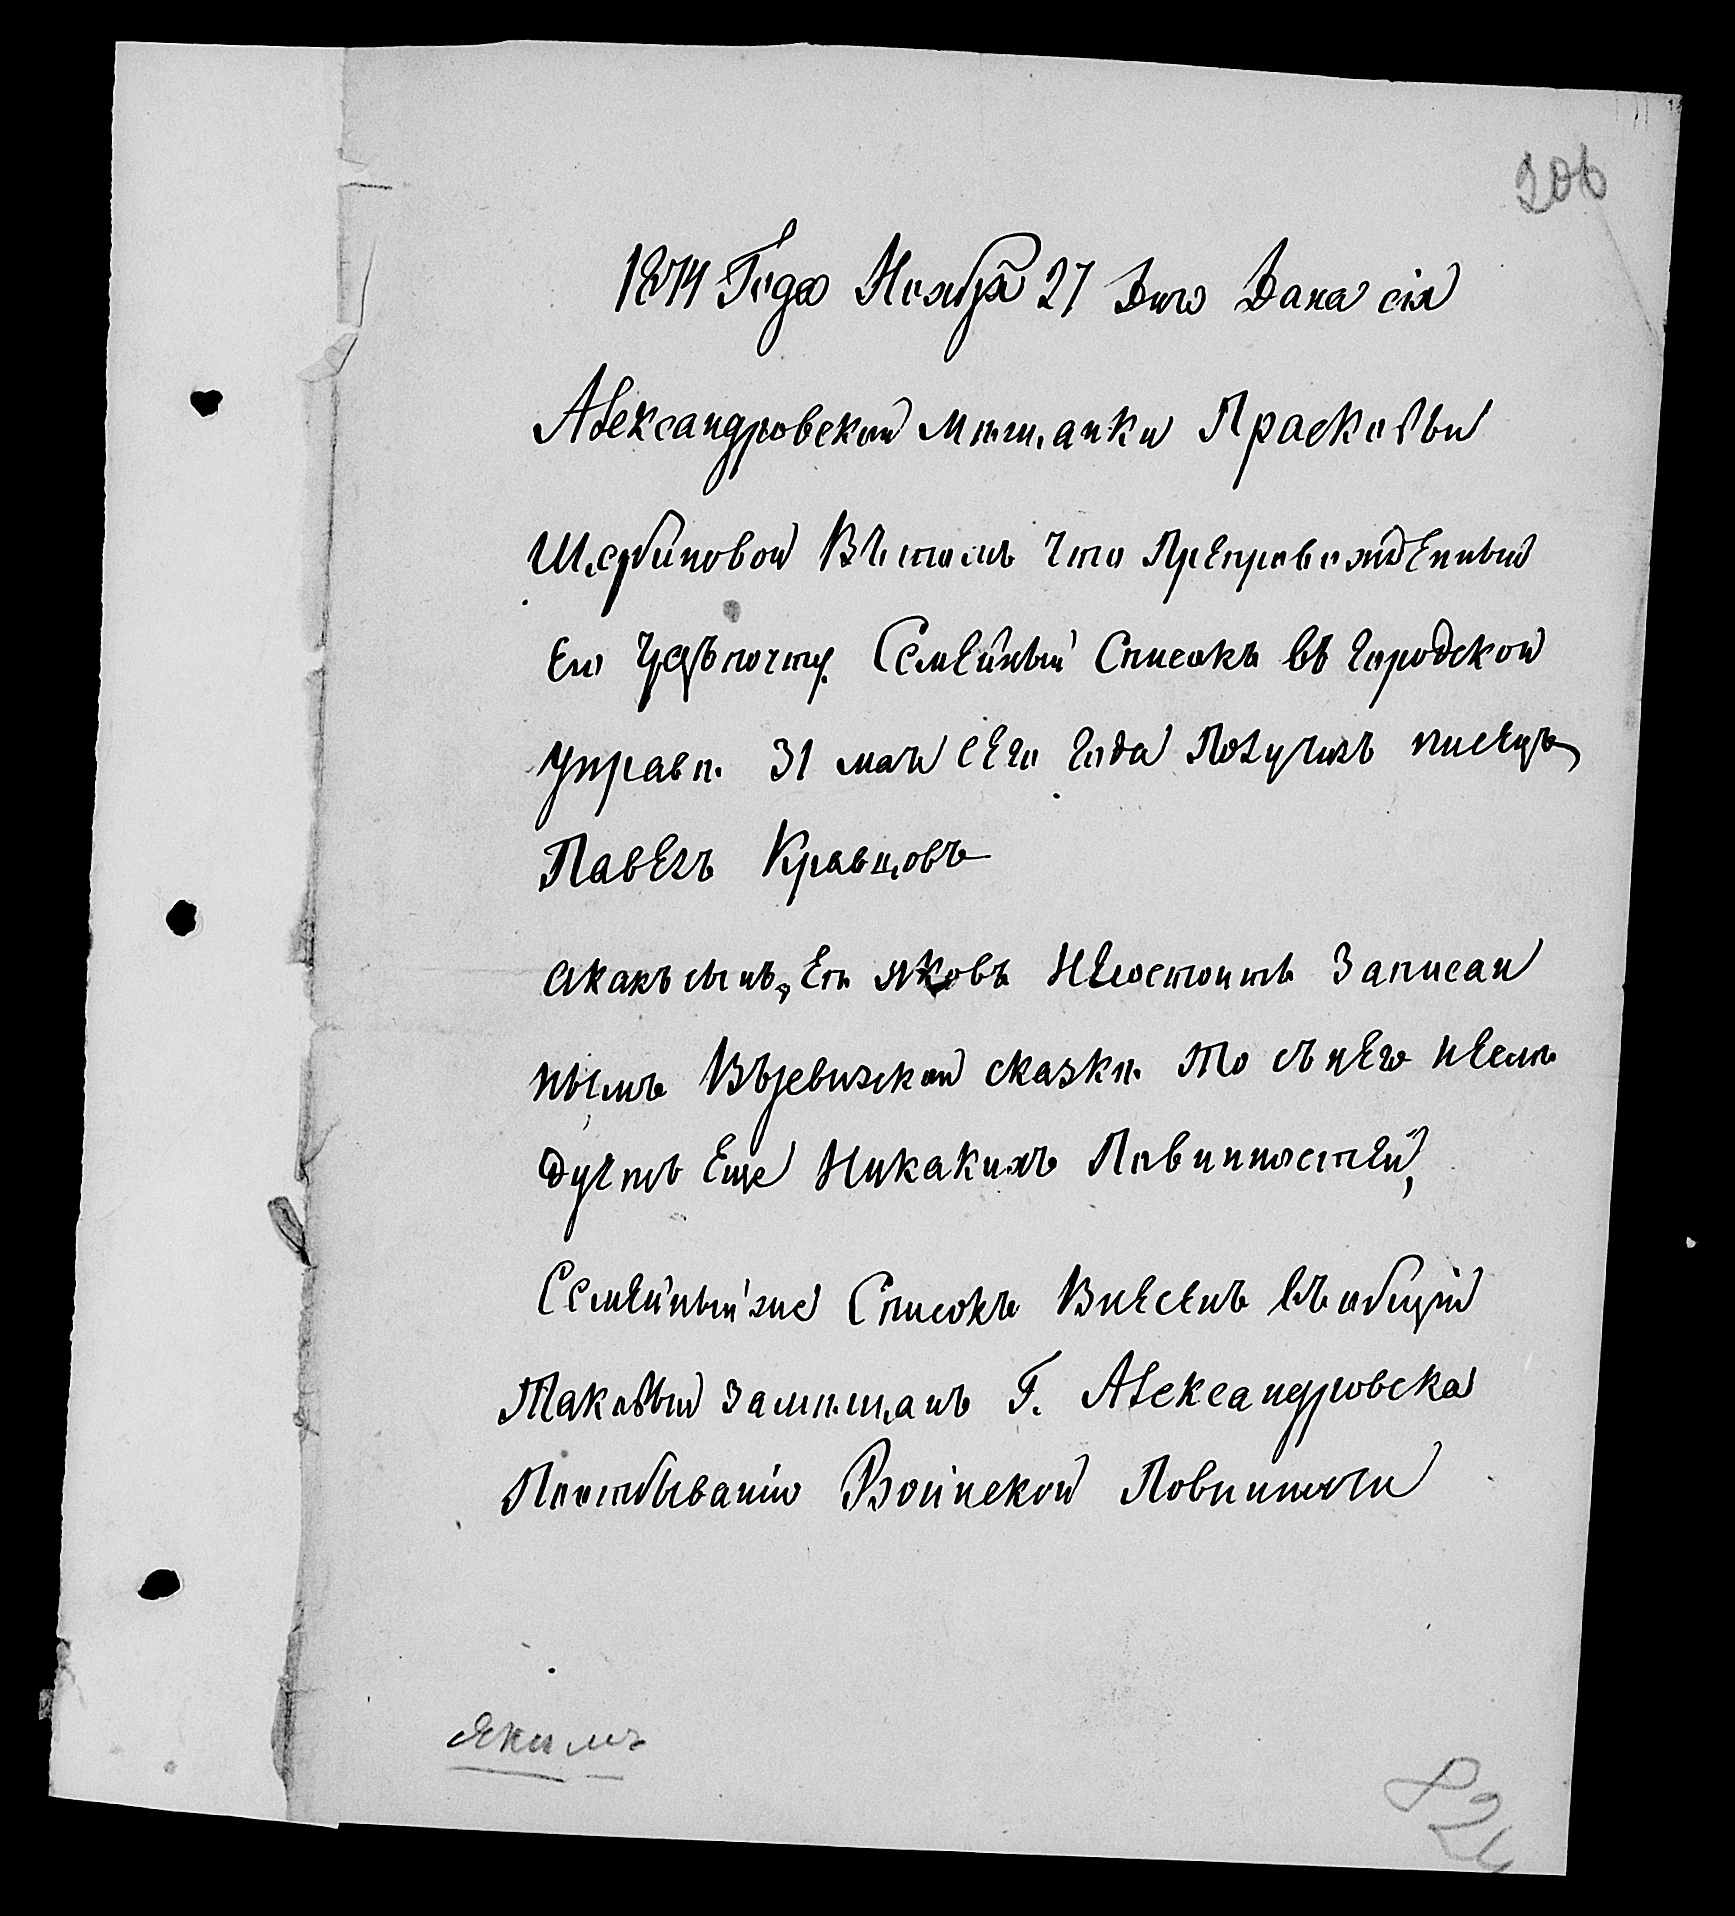 206
1874 Года Ноября 27 Дня Дана сія
Александровской мѣщанки Прасковьи
Щербиновой Вътомъ Что Препровожденный
Ею чрезъ почту Семейный Списокъ въ городской
управѣ 31 мая сего года Получилъ писецъ
Павелъ Кравцовъ
Акакъ сынъ, Ея Яковъ Несостоитъ Записан
нымъ Въревизской сказкѣ То съ него неслѣ
дуетъ Еще Никакихъ Повинностей,
Семейный же Списокъ Внесенъ въ общій
Таковый замѣщанъ Г. Александровска
Поотбыванію Воинской Повинности
Якимъ
82